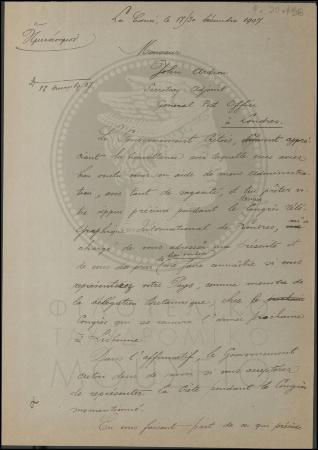 La Canée, le 17/30 décembre 1907
Monsieur
John Ardron
Secretary Adjoint
General Post Office
à Londres.
Le Gouvernement Crétois, appré-
ciant la bienveillance avec laquelle vous avez
bien voulu venir en aide de notre administra-
tion, avec tant de et lui prêter vo-
tre appui précieux pendant le Congrès Télé-
graphique International de Londres, m'a
chargé de vous adresser la présente et
de vous de faire connaître si vous
représenterez votre Pays, comme membre de
la délégation britannique, chez le
Congrès qui se réunira l'année prochaine
à Lisbonne.
Dans l'affirmatif, le Gouvernement
crétois de savoir si vous accepterez
de représenter la Crète pendant le Congrès
susmentionné.
En vous faisant part de ce qui précède